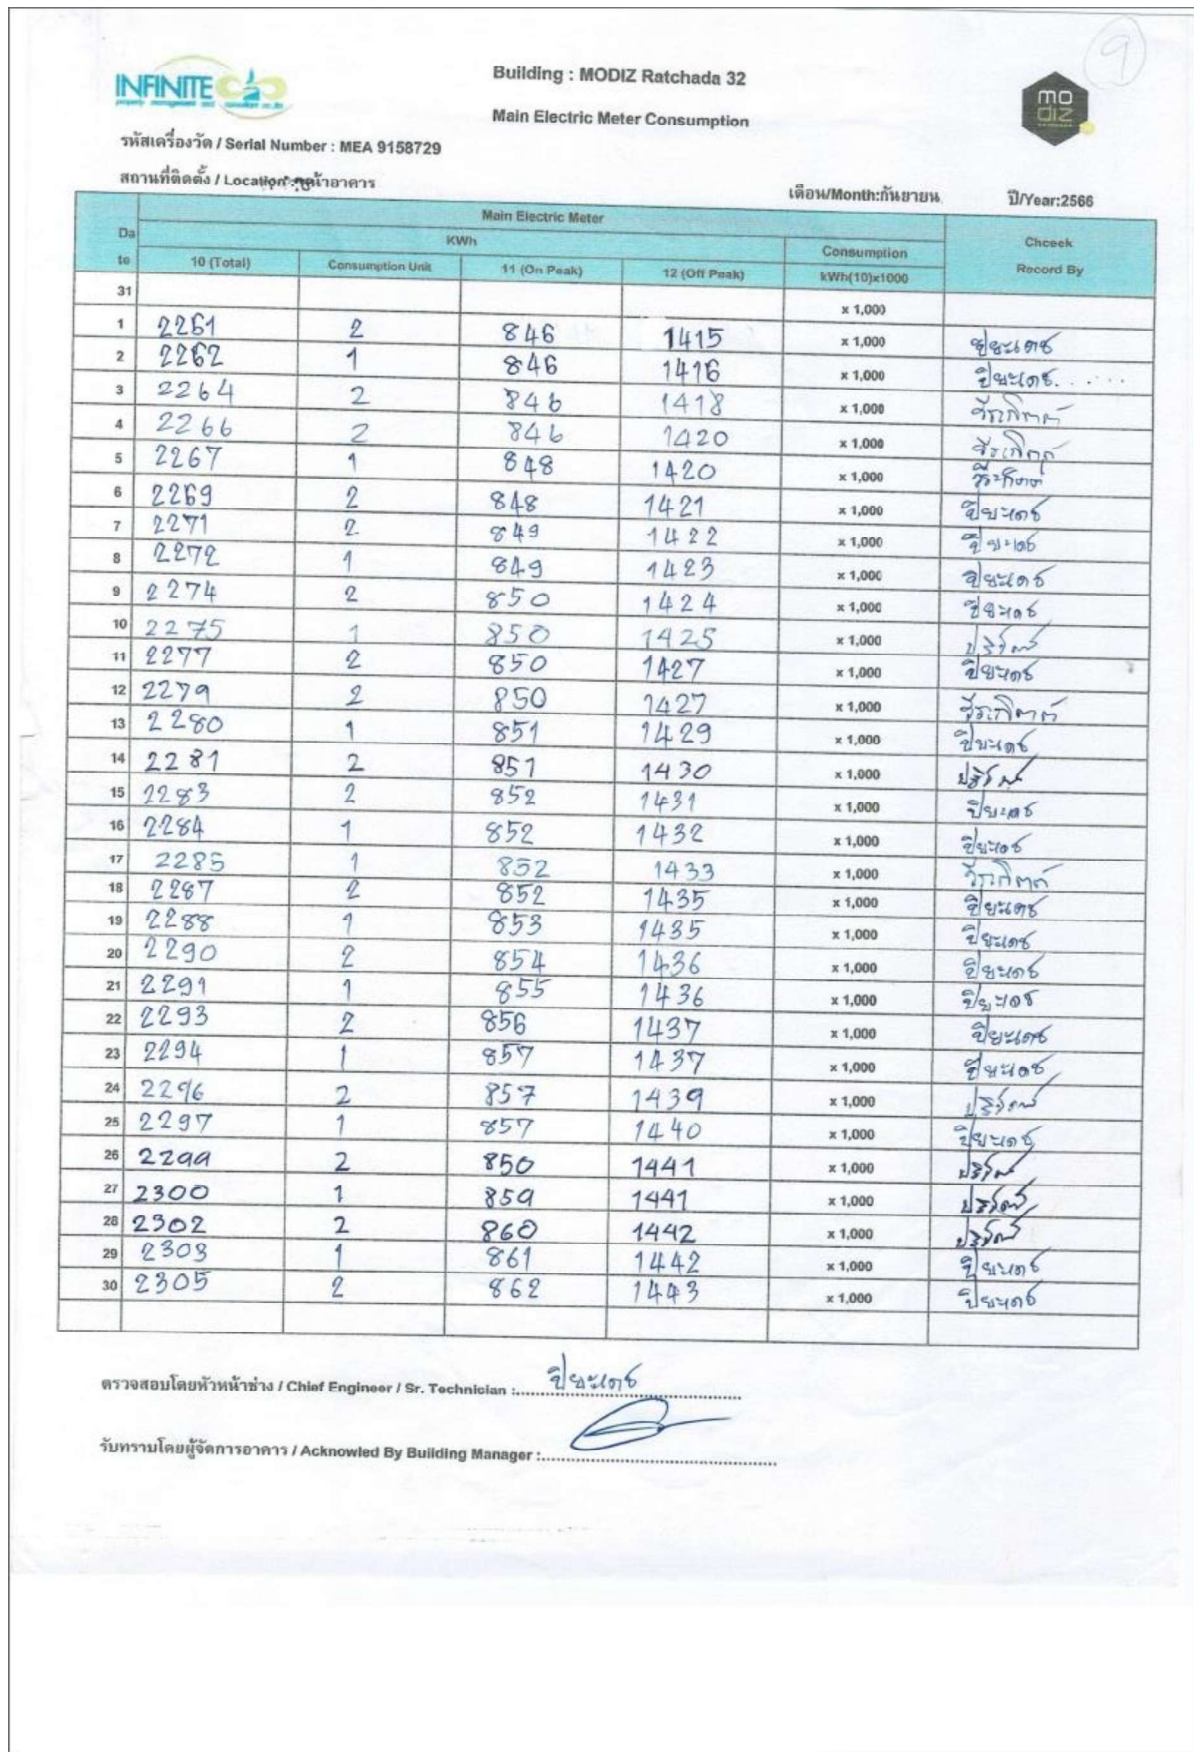 9
INFINITE
Building : MODIZ Ratchada 32
Main Electric Meter Consumption
mo
diz
รหัสเครื่องวัด / Serial Number : MEA 9158729
สถานที่ติดตั้ง / Location หน้าอาคาร
เดือน/Month:กันยายน ปี/Year:2566
Da te Main Electric Meter Chceek Record By
KWh Consumption
10 (Total) Consumption Unit 11 (On Peak) 12 (Off Peak) kWh(10)x1000
31 x 1,000
1 2261 2 846 1415 x 1,000 ปิยะเดช
2 2262 1 846 1416 x 1,000 ปิยะเดช
3 2264 2 846 1418 x 1,000
4 2266 2 846 1420 x 1,000
5 2267 1 848 1420 x 1,000
6 2269 2 848 1421 x 1,000 ปิยะเดช
7 2271 2 849 1422 x 1,000 ปิยะเดช
8 2272 1 849 1423 x 1,000 ปิยะเดช
9 2274 2 850 1424 x 1,000 ปิยะเดช
10 2275 1 850 1425 x 1,000
11 2277 2 850 1427 x 1,000 ปิยะเดช
12 2279 2 850 1427 x 1,000
13 2280 1 851 1429 x 1,000 ปิยะเดช
14 2281 2 851 1430 x 1,000
15 2283 2 852 1431 x 1,000 ปิยะเดช
16 2284 1 852 1432 x 1,000 ปิยะเดช
17 2285 1 852 1433 x 1,000
18 2287 2 852 1435 x 1,000 ปิยะเดช
19 2288 1 853 1435 x 1,000 ปิยะเดช
20 2290 2 854 1436 x 1,000 ปิยะเดช
21 2291 1 855 1436 x 1,000 ปิยะเดช
22 2293 2 856 1437 x 1,000 ปิยะเดช
23 2294 1 857 1437 x 1,000 ปิยะเดช
24 2296 2 857 1439 x 1,000
25 2297 1 857 1440 x 1,000 ปิยะเดช
26 2299 2 850 1441 x 1,000
27 2300 1 859 1441 x 1,000
28 2302 2 860 1442 x 1,000
29 2303 1 861 1442 x 1,000 ปิยะเดช
30 2305 2 862 1443 x 1,000 ปิยะเดช
ตรวจสอบโดยหัวหน้าช่าง / Chief Engineer / Sr. Technician :........ปิยะเดช........
รับทราบโดยผู้จัดการอาคาร / Acknowled By Building Manager :........